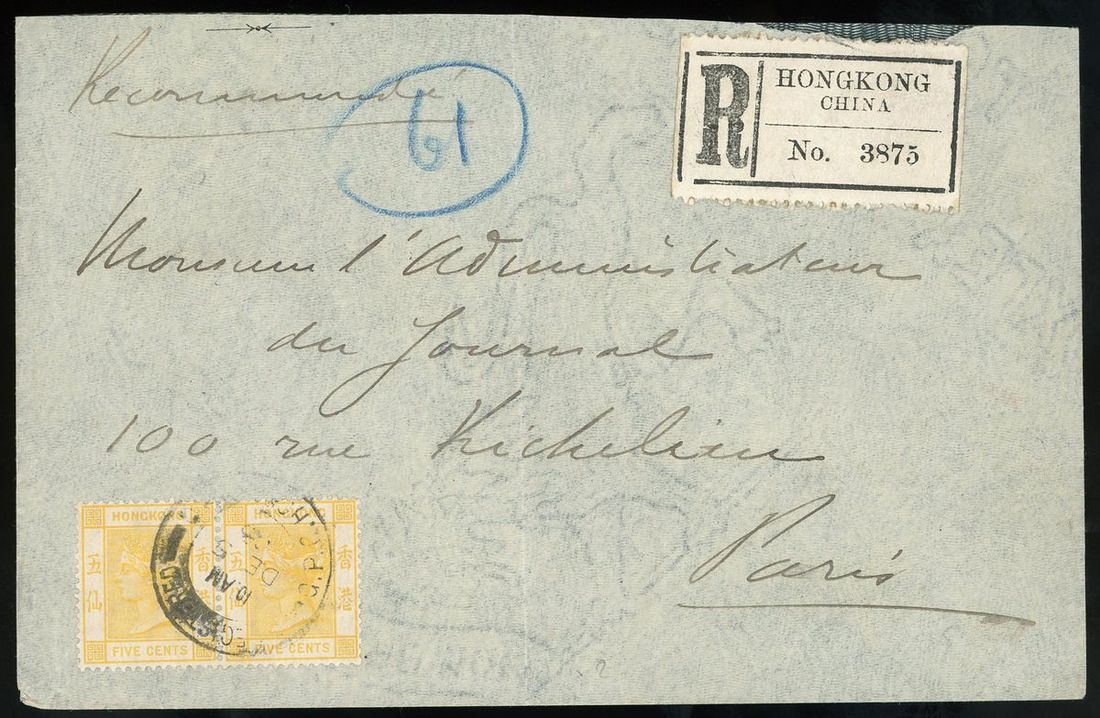 Recommandé
61
R
HONGKONG
CHINA
No. 3875
Monsieur l'Administrateur
du Journal
100 rue Richelieu
Paris
HONGKONG
五仙
香港
FIVE CENTS
五仙
香港
FIVE CENTS
REGISTERED
G.P.O. H.
10 AM
DE